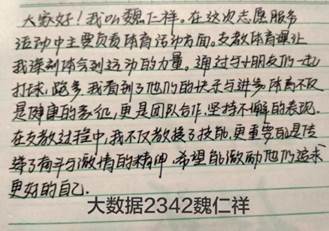 大家好！我叫魏仁祥。在这次志愿服务
活动中主要负责体育活动方面。支教体育课让
我深刻体会到运动的力量。通过与小朋友们一起
打球，跑步，我看到了他们的快乐与进步体育不仅
是健康的象征，更是团队合作，坚持不懈的表现。
在支教过程中，我不仅教授了技能，更重要的是传
递了有关与激情的精神，希望能激励他们追求
更好的自己。
大数据2342魏仁祥